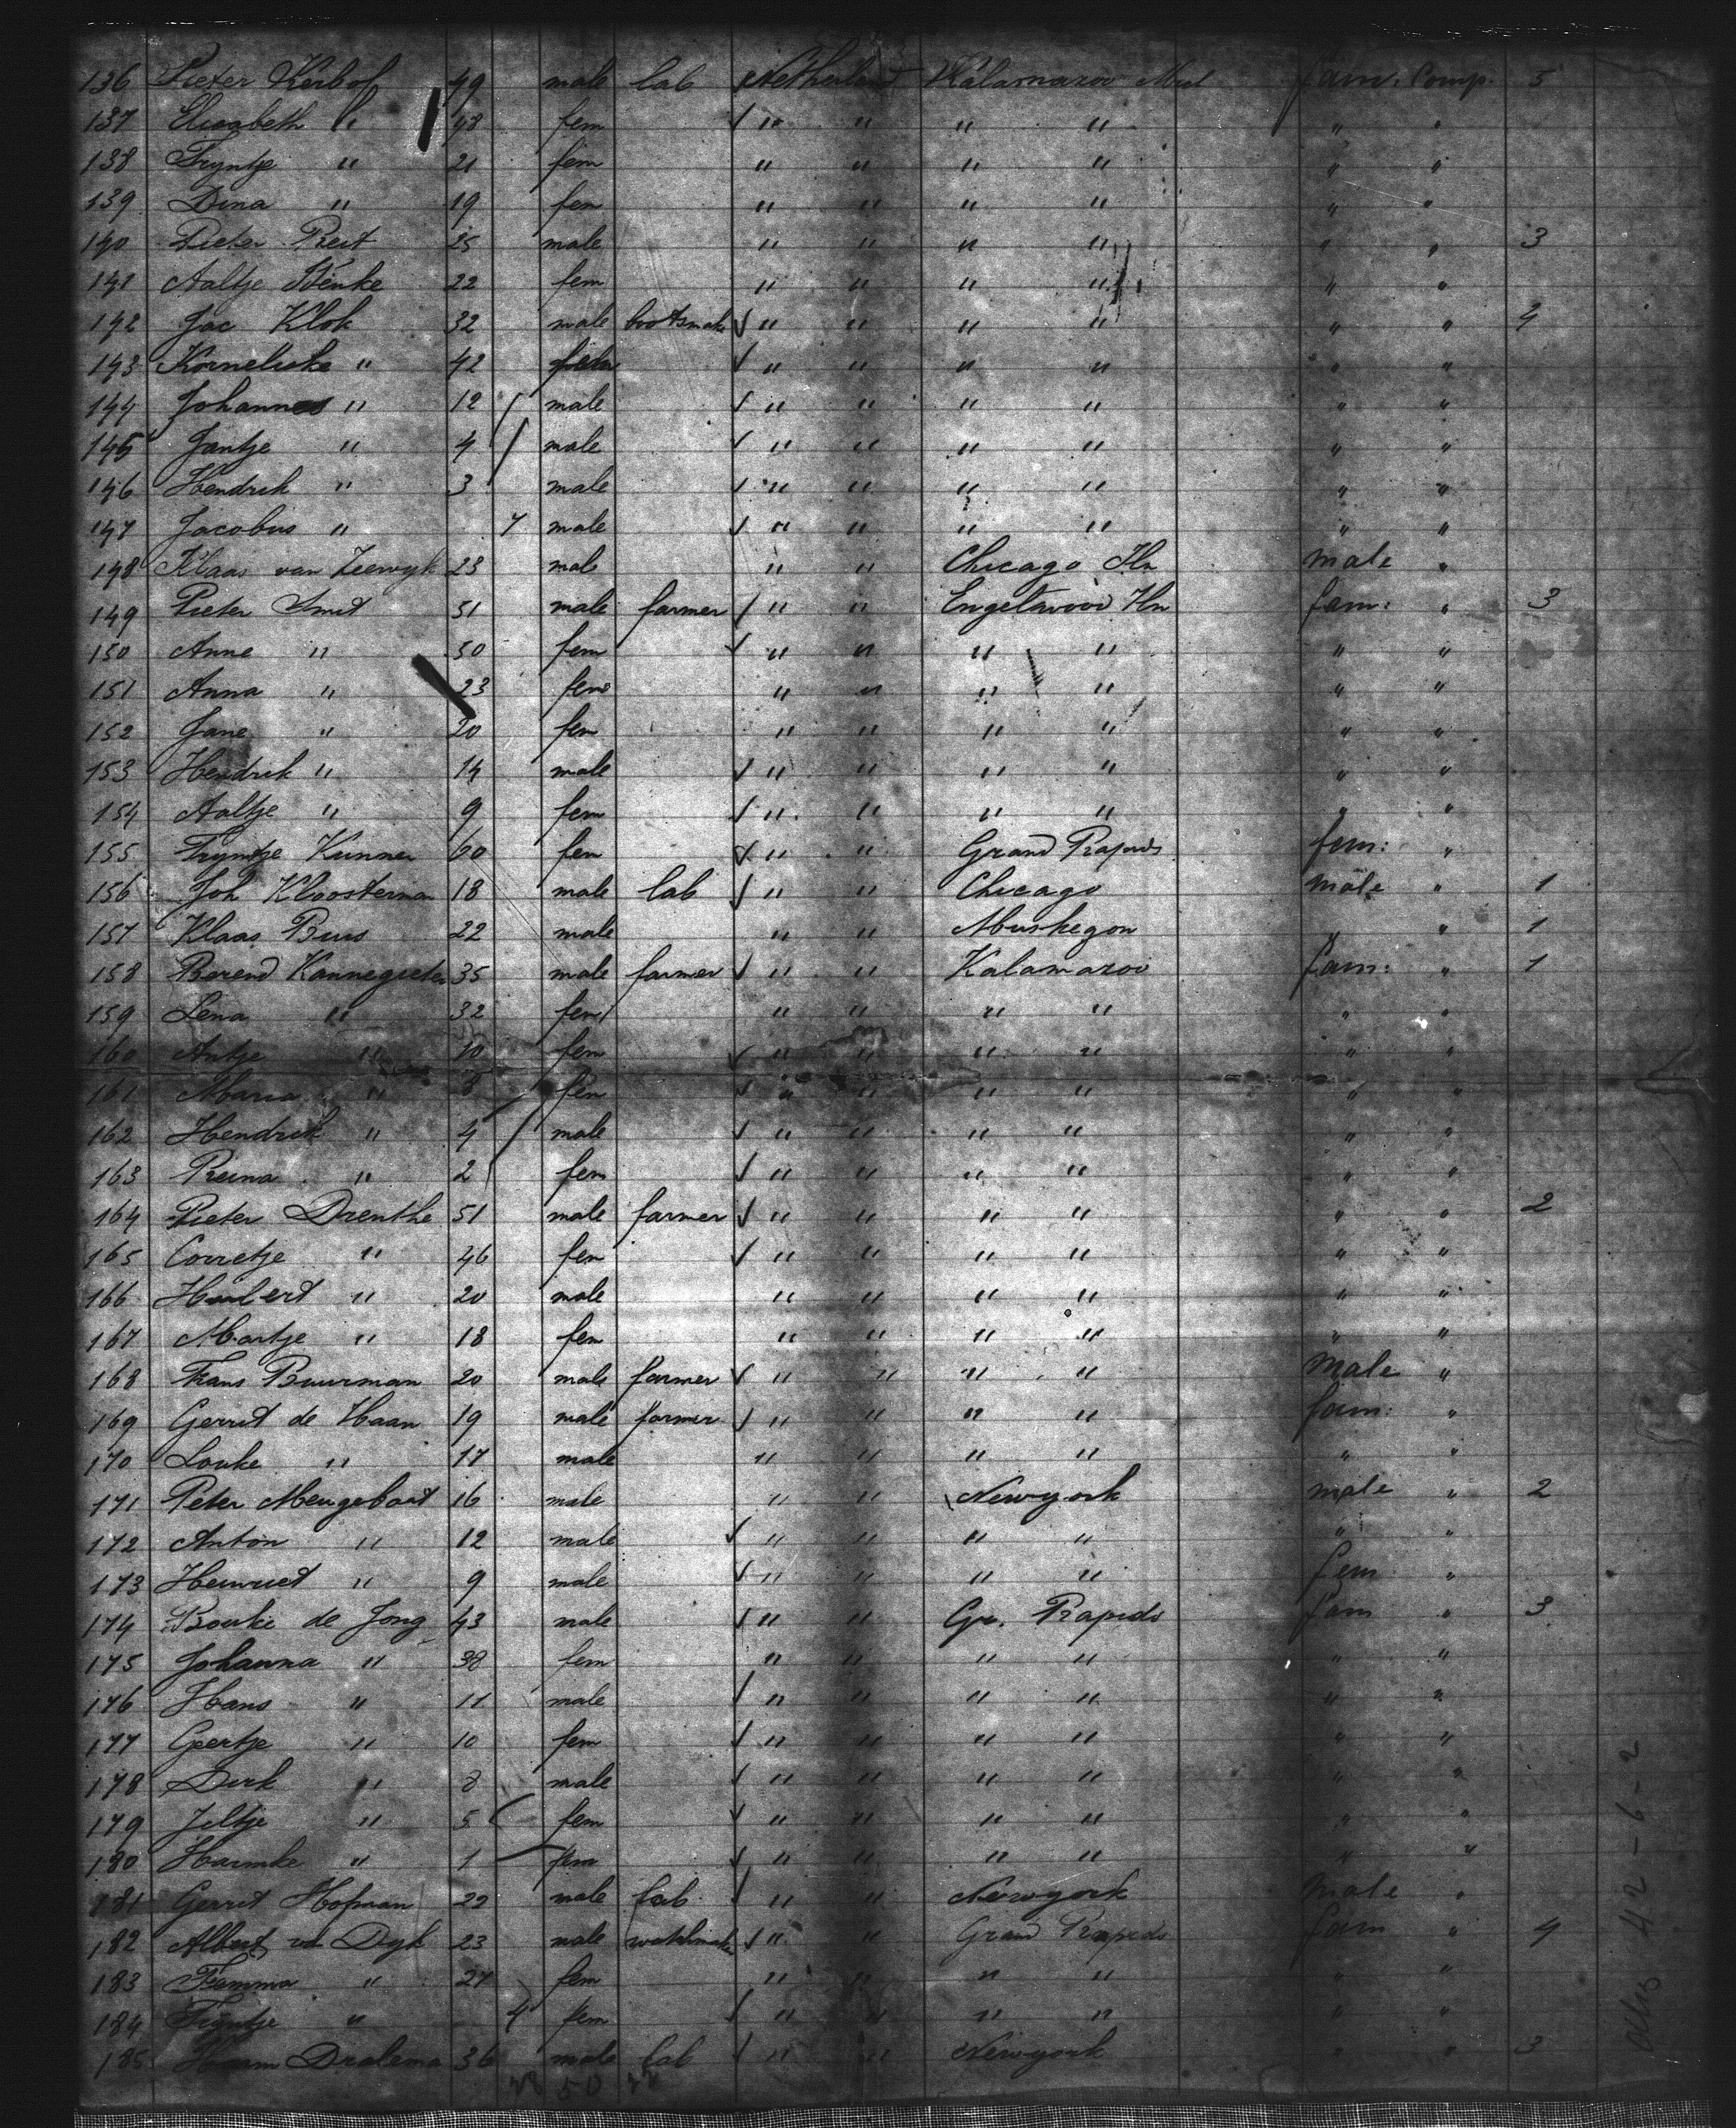 136 Pieter Kerbof 49 male lab Netherland Kalamazoo Mich fam. Comp. 5
137 Elisabeth " 48 fem " " " " " "
138 Tryntje " 21 fem " " " " " "
139 Dina " 19 fem " " " " " "
140 Pieter Reit 25 male " " " " " " 3
141 Aaltje Stenke 22 fem " " " " " "
142 Jac Klok 32 male bootsmake " " " " " " 4
143 Korneliske " 42 fem " " " " " "
144 Johannes " 12 male " " " " " "
145 Jantje " 4 male " " " " " "
146 Hendrik " 3 male " " " " " "
147 Jacobus " 7 male " " " " " "
148 Klaas van Zeewyk 23 male " " Chicago Iln male "
149 Pieter Smit 51 male farmer " " Engelswood Iln fam: " 3
150 Anne " 50 fem " " " " " "
151 Anna " 23 fem " " " " " "
152 Jane " 20 fem " " " " " "
153 Hendrik " 14 male " " " " " "
154 Aaltje " 9 fem " " " " " "
155 Tryntje Kunner 60 fem " " Grand Rapids fem: "
156 Joh Kloosterman 18 male lab " " Chicago male " 1
157 Klaas Buis 22 male " " Muskegon " " 1
158 Berend Kannegieter 35 male farmer " " Kalamazoo fam: " 1
159 Lena " 32 fem " " " " " "
160 Antje " 10 fem " " " " " "
161 Maria " 8 fem " " " " " "
162 Hendrik " 4 male " " " " " "
163 Reina " 2 fem " " " " " "
164 Pieter Drenthe 51 male farmer " " " " " " 2
165 Corretje " 46 fem " " " " " "
166 Huibert " 20 male " " " " " "
167 Martje " 18 fem " " " " " "
168 Frans Buurman 20 male farmer " " " " male "
169 Gerrit de Haan 19 male farmer " " " " fam: "
170 Louke " 17 male " " " " " "
171 Peter Mengebart 16 male " " Newyork male " 2
172 Anton " 12 male " " " " " "
173 Heinriet " 9 male " " " " fem "
174 Bouke de Jong 43 male " " Gr. Rapids fam " 3
175 Johanna " 38 fem " " " " " "
176 Hans " 11 male " " " " " "
177 Geertje " 10 fem " " " " " "
178 Dirk " 8 male " " " " " "
179 Jeltje " 5 fem " " " " " "
180 Harmke " 1 fem " " " " " "
181 Gerrit Hofman 22 male lab " " Newyork male "
182 Albert van Dyk 23 male watchmaker " " Grand Rapids fam " 4
183 Femma " 27 fem " " " " " "
184 Tryntje " 4 fem " " " " " "
185 Harm Dralema 36 male lab " " Newyork " " 3
50 22
42-6-2